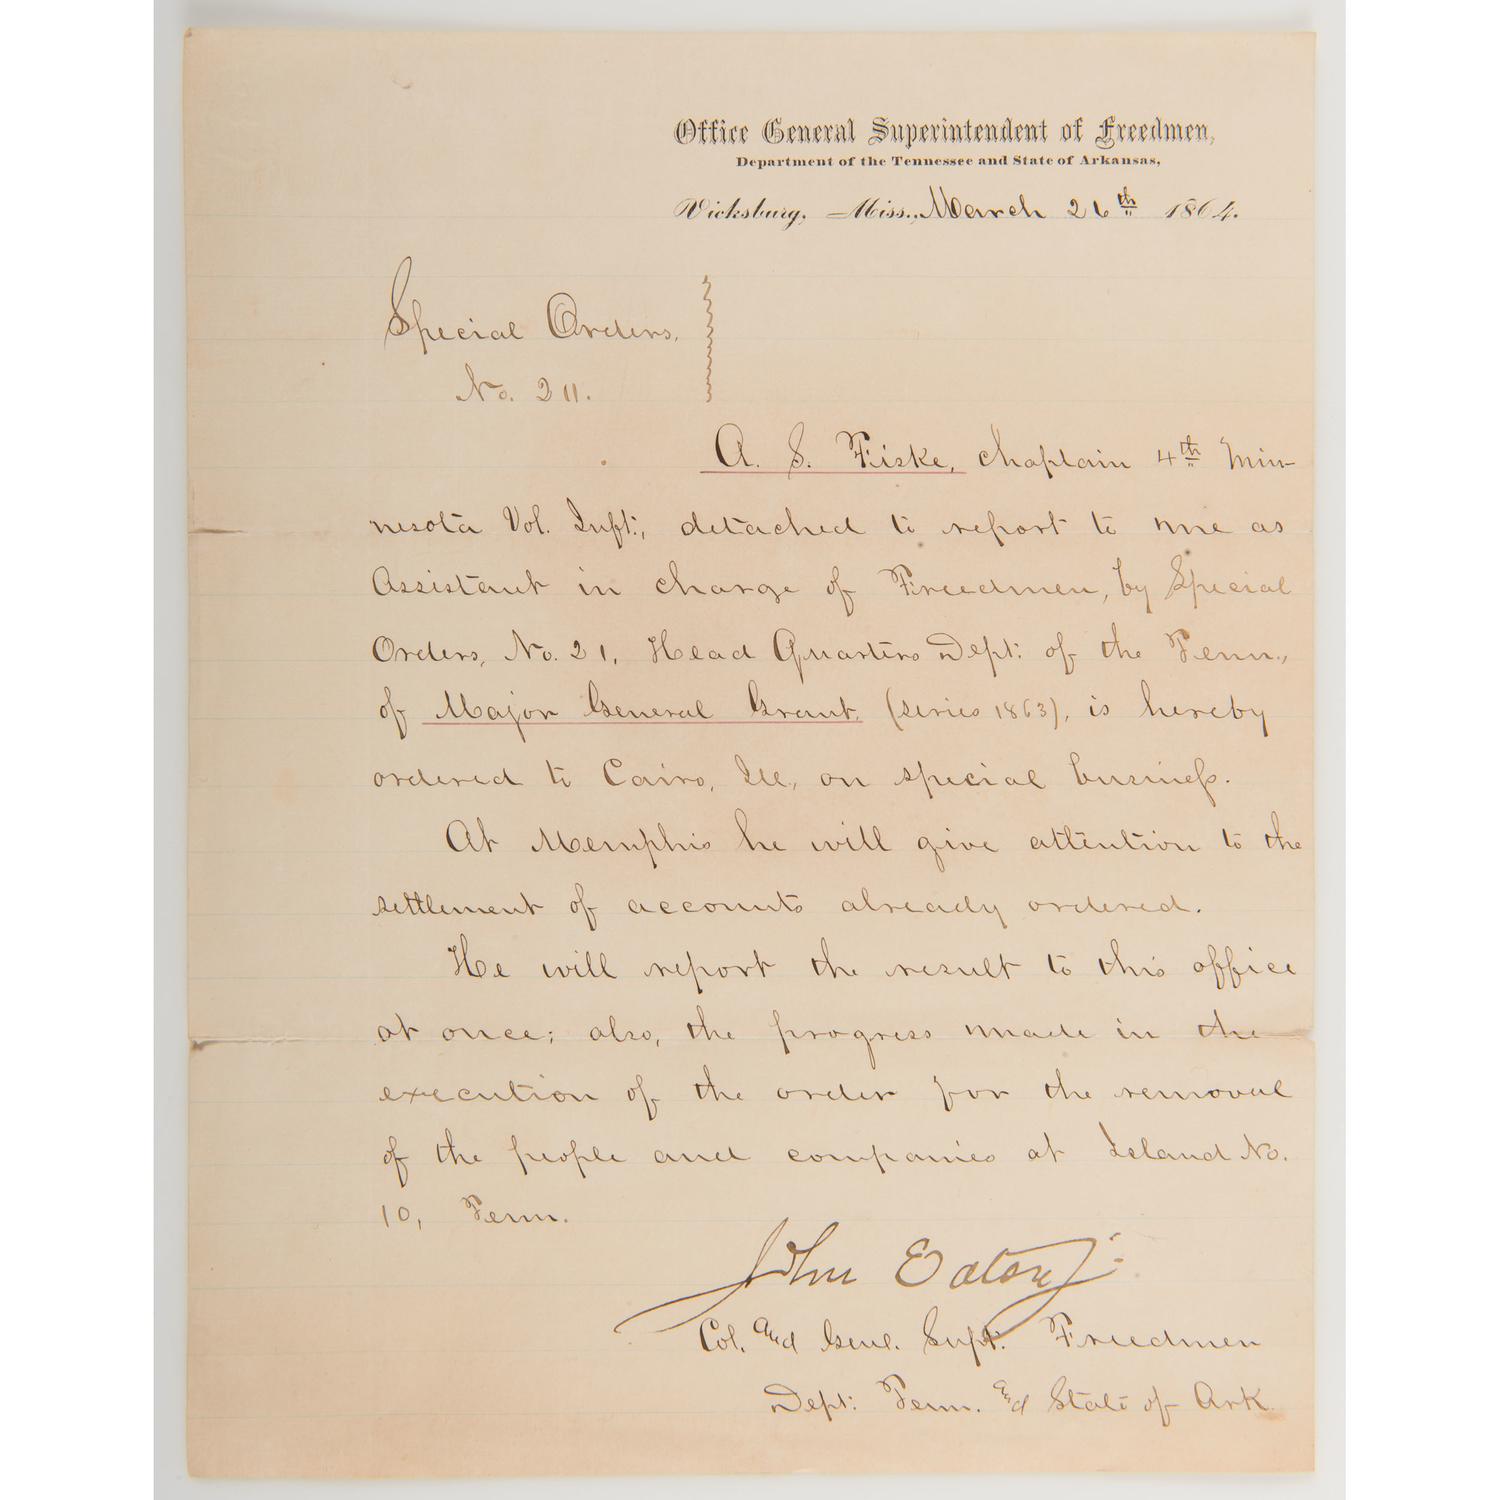 Office General Superintendent of Freedmen,
Department of the Tennessee and State of Arkansas,
Vicksburg, Miss., March 26th 1864.
Special Orders,
No. 211.
A. S. Fiske, Chaplain 4th Min-
nesota Vol. Inft:, detached to report to me as
Assistant in charge of Freedmen, by Special
Orders, No. 21, Head Quarters Dept: of the Tenn.,
of Major General Grant, (series 1863), is hereby
ordered to Cairo, Ill., on special business.
At Memphis he will give attention to the
settlement of accounts already ordered.
He will report the result to this office
at once; also, the progress made in the
execution of the order for the removal
of the people and companies at Island No.
10, Tenn.
John Eaton Jr.
Col. and Genl. Supt. Freedmen
Dept: Tenn. and State of Ark.